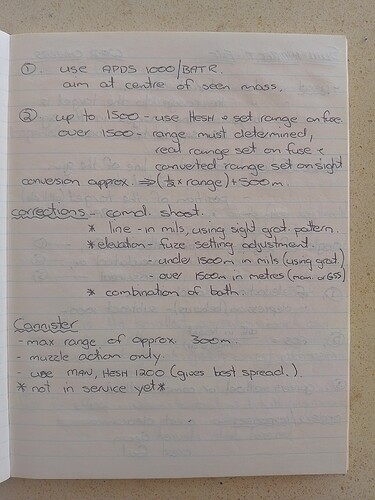 ① use APDS 1000/BATR.
aim at centre of seen mass.
② up to 1500 - use HESH + set range on fuze
over 1500 - range must determined,
real range set on fuse &
converted range set on sight
conversion approx. ⇒ (½ x range) + 500m.
corrections - comd. shoot.
* line - in mils, using sight grat. pattern.
* elevation - fuze setting adjustment.
- under 1500m in mils (using grat.)
- over 1500m in metres (man. or GSS)
* combination of both
Cannister
- max range of approx. 300m.
- muzzle action only.
- use MAN, HESH 1200 (gives best spread.)
* not in service yet *